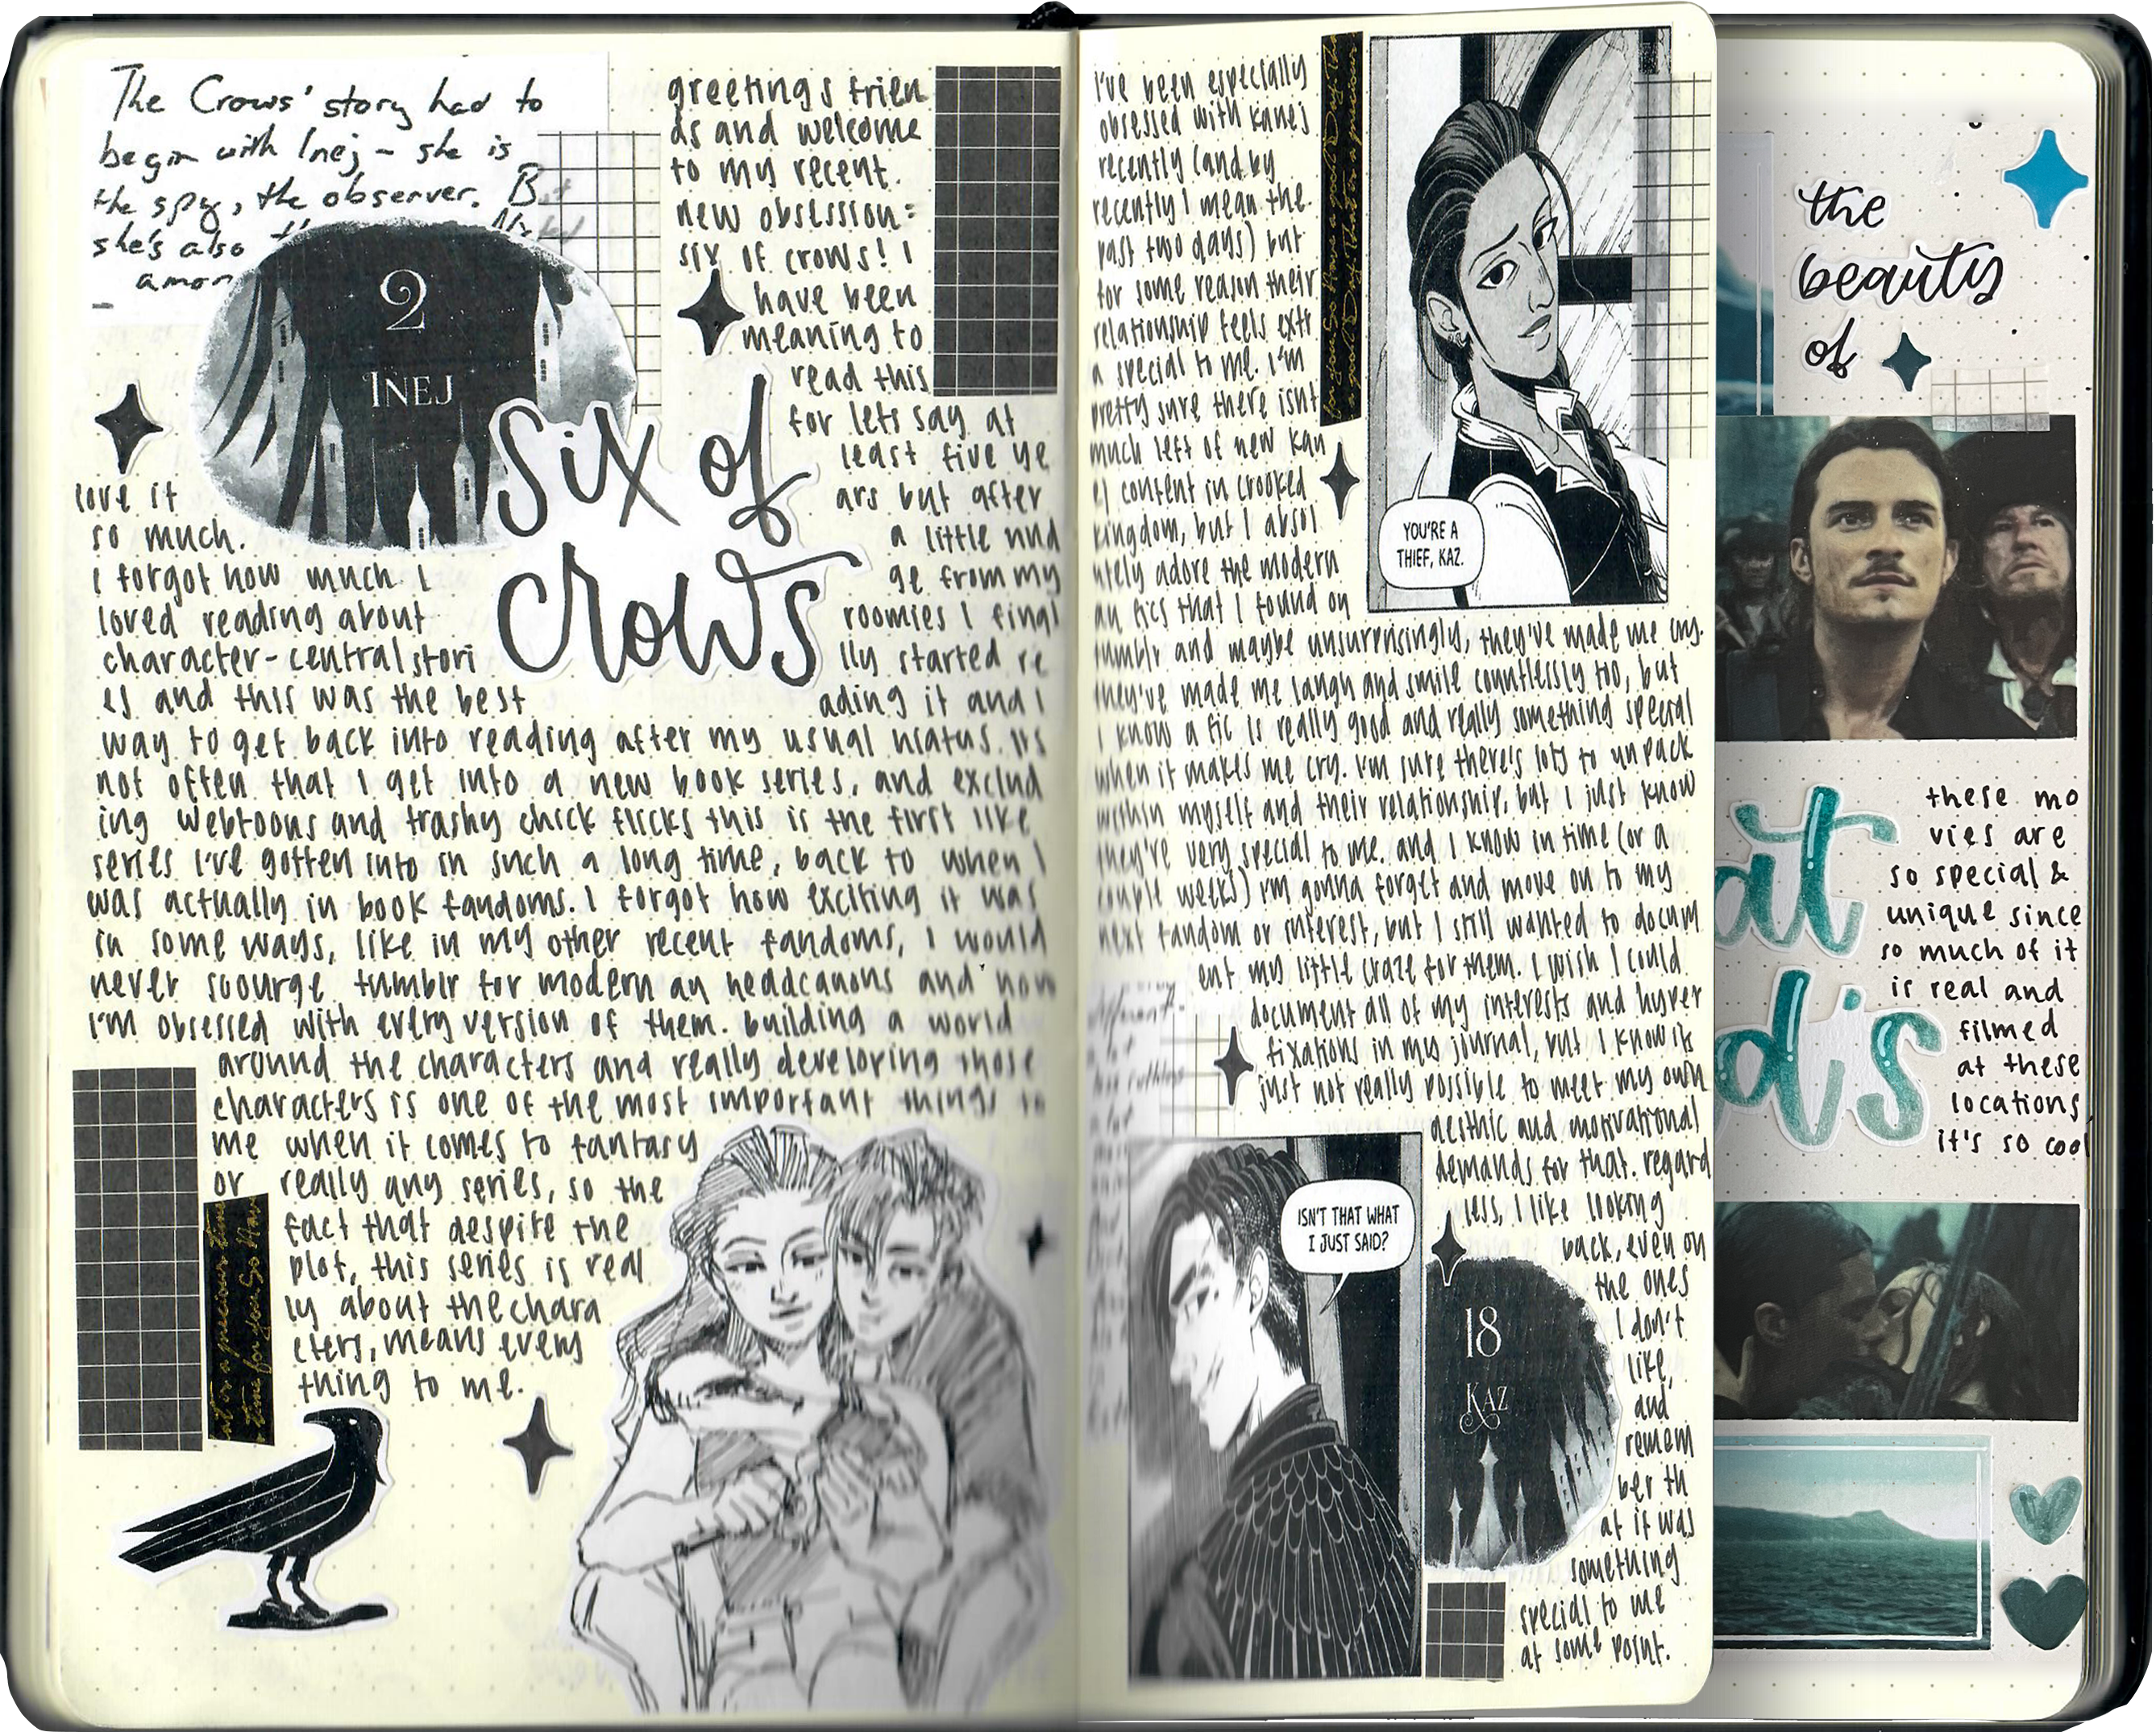 The Crows' story had to
begin with Inej - she is
the spy, the observer.
she's also
2
INEJ
greetings frien
ds and welcome
to my recent
new obsession:
six of crows! I
have been
meaning to
read this
for lets say at
least five ye
ars but after
a little nud
ge from my
roomies I final
lly started re
ading it and I
six of
crows
love it
so much.
I forgot how much I
loved reading about
character-central stori
es and this was the best
way to get back into reading after my usual hiatus. its
not often that I get into a new book series, and exclud
ing webtoons and trashy chick flicks this is the first like
series I've gotten into in such a long time, back to when I
was actually in book fandoms. I forgot how exciting it was
in some ways, like in my other recent fandoms, I would
never scourge tumblr for modern au headcanons and now
I'm obsessed with every version of them. building a world
around the characters and really developing those
characters is one of the most important things to
me when it comes to fantasy
or really any series, so the
fact that despite the
plot, this series is real
ly about the chara
cters, means every
thing to me.
I've been especially
obsessed with kanej
recently (and by
recently I mean the
past two days) but
for some reason their
relationship feels extr
a special to me. I'm
pretty sure there isnt
much left of new kan
ej content in crooked
kingdom, but I absol
utely adore the modern
au fics that I found on
tumblr and maybe unsurprisingly, they've made me cry.
they've made me laugh and smile countlessly too, but
I know a fic is really good and really something special
when it makes me cry. I'm sure there's lots to unpack
within myself and their relationship, but I just know
they're very special to me. and I know in time (or a
couple weeks) I'm gonna forget and move on to my
next fandom or interest, but I still wanted to docum
ent my little craze for them. I wish I could
document all of my interests and hyper
fixations in my journal, but I know its
just not really possible to meet my own
aesthic and motivational
demands for that. regard
less, I like looking
back, even on
the ones
I don't
like,
and
remem
ber th
at it was
something
special to me
at some point.
YOU'RE A
THIEF, KAZ.
ISN'T THAT WHAT
I JUST SAID?
18
KAZ
the
beauty
of
at
d's
these mo
vies are
so special &
unique since
so much of it
is real and
filmed
at these
locations,
it's so cool